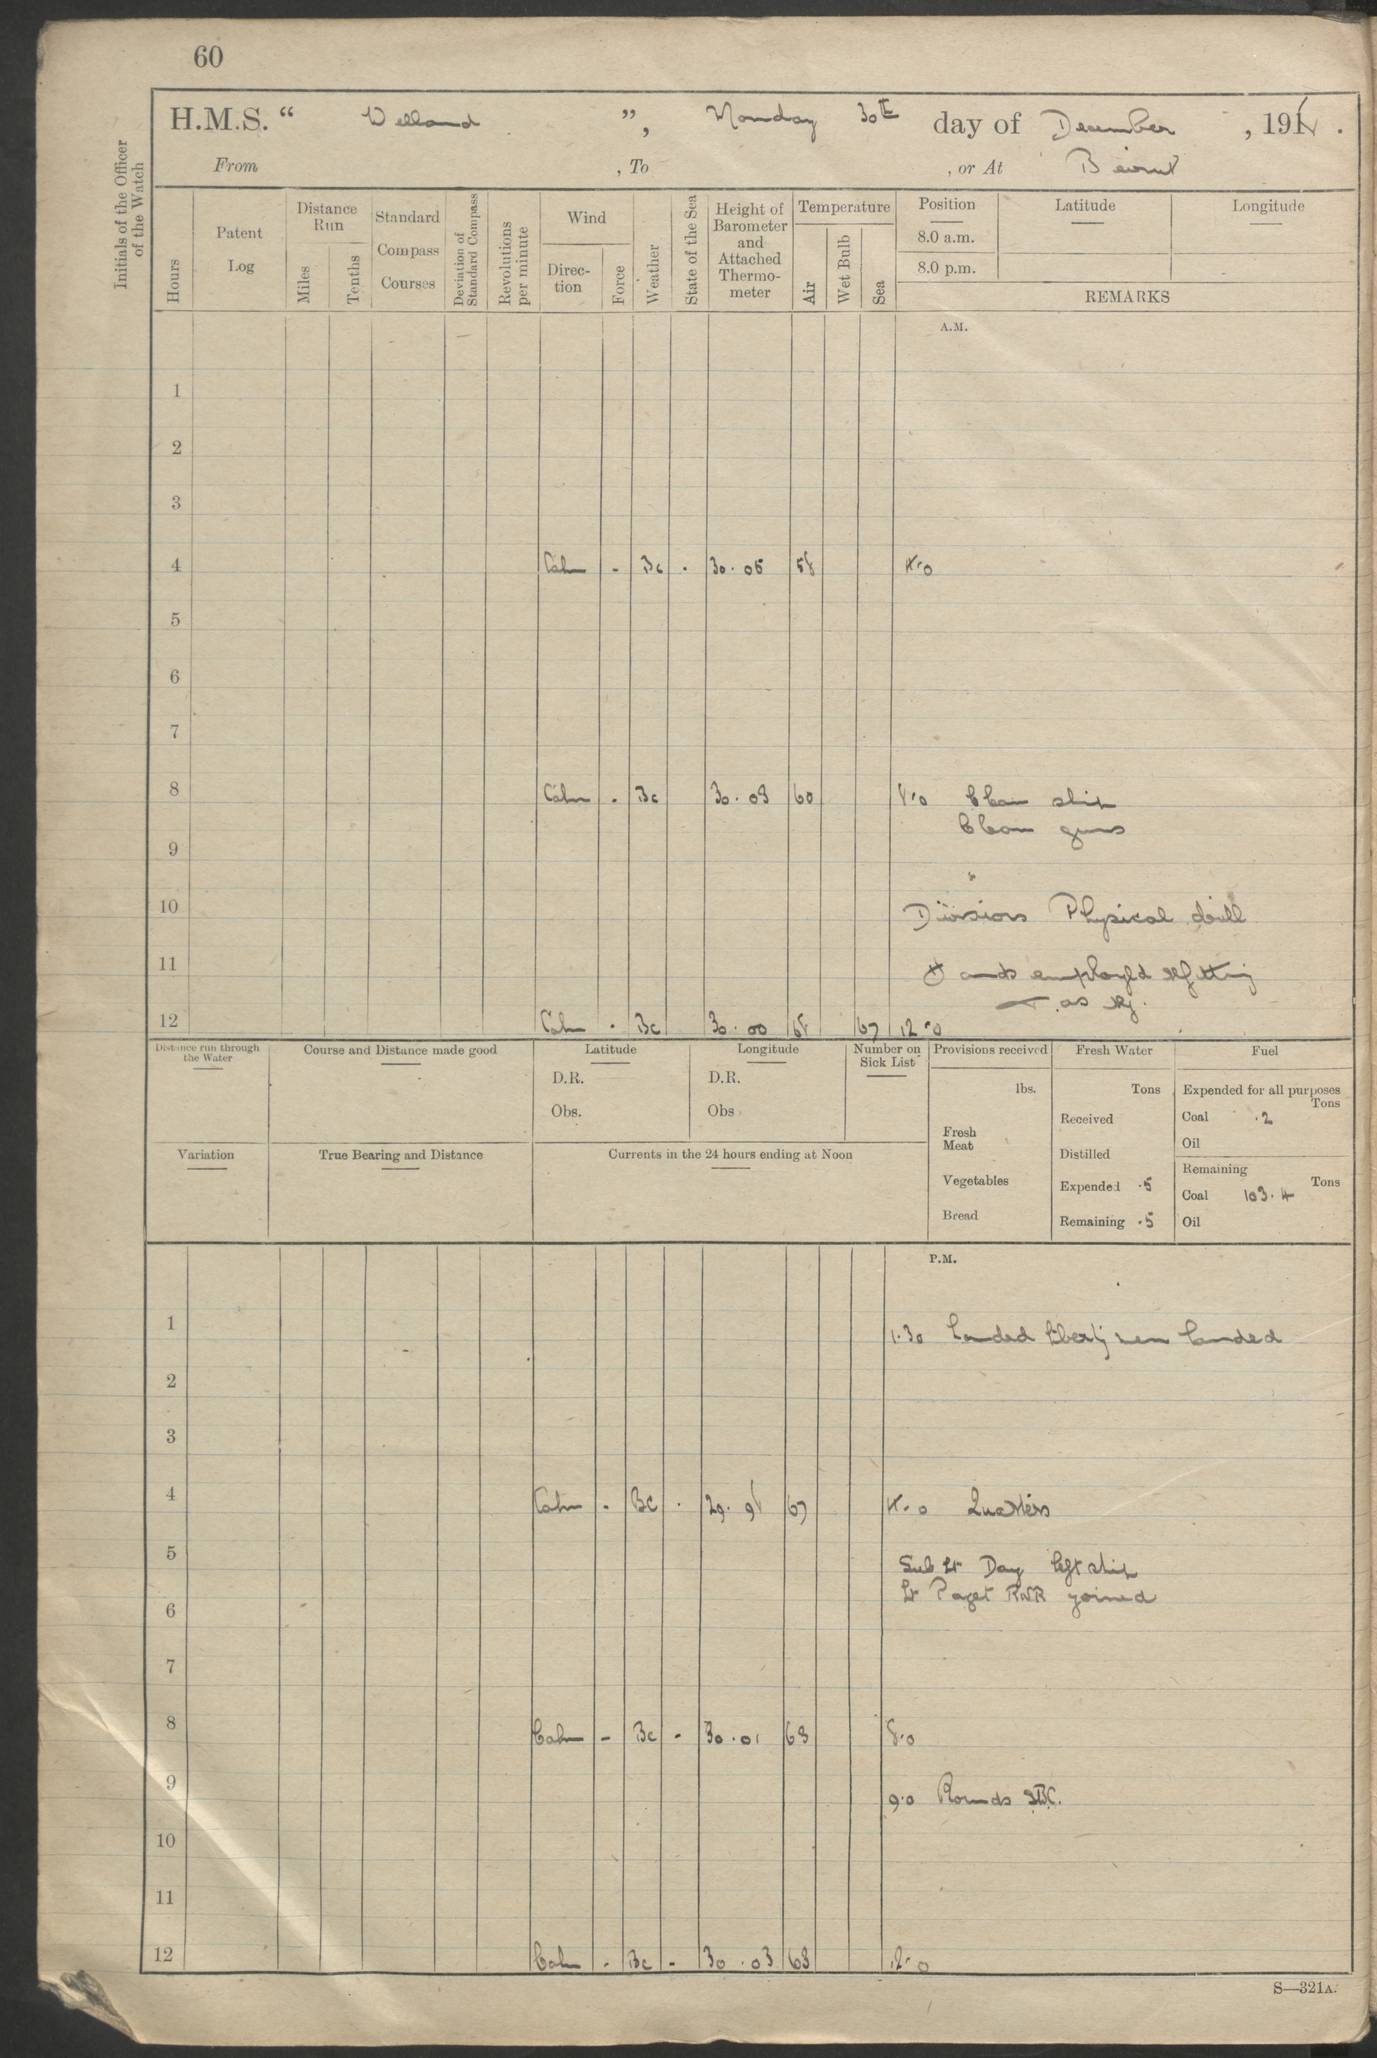 60
H.M.S. “ Welland ”, Monday 30th day of December, 191
From , To , or At Beirut
Initials of the Officer of the Watch
Hours
Patent Log
Distance Run
Miles
Tenths
Standard Compass Courses
Deviation of Standard Compass
Revolutions per minute
Wind
Direc-tion
Force
Weather
State of the Sea
Height of Barometer and Attached Thermo-meter
Temperature
Air
Wet Bulb
Sea
Position
8.0 a.m.
8.0 p.m.
Latitude
Longitude
REMARKS
A.M.
1
2
3
4 Calm - Bc . 30.05 58 4.0
5
6
7
8 Calm . Bc 30.03 60 8.0 Clean ship
Clean guns
9
10 Divisions Physical drill
11 Hands employed refitting
as req.
12 Calm . Bc 30.00 68 67 12.0
Distance run through the Water
Course and Distance made good
Latitude
D.R.
Obs.
Longitude
D.R.
Obs.
Number on Sick List
Provisions received
lbs.
Fresh Meat
Vegetables
Bread
Fresh Water
Tons
Received
Distilled
Expended .5
Remaining .5
Fuel
Expended for all purposes
Tons
Coal .2
Oil
Remaining
Tons
Coal 103.4
Oil
Variation
True Bearing and Distance
Currents in the 24 hours ending at Noon
P.M.
1 1.30 Landed liberty men landed
2
3
4 Calm - Bc . 29.98 67 4.0 Quarters
5 Sub Lt Day left ship
6 Lt Paget RNR joined
7
8 Calm - Bc - 30.01 63 8.0
9 9.0 Rounds
10
11
12 Calm - Bc - 30.03 63 12.0
S—321A.